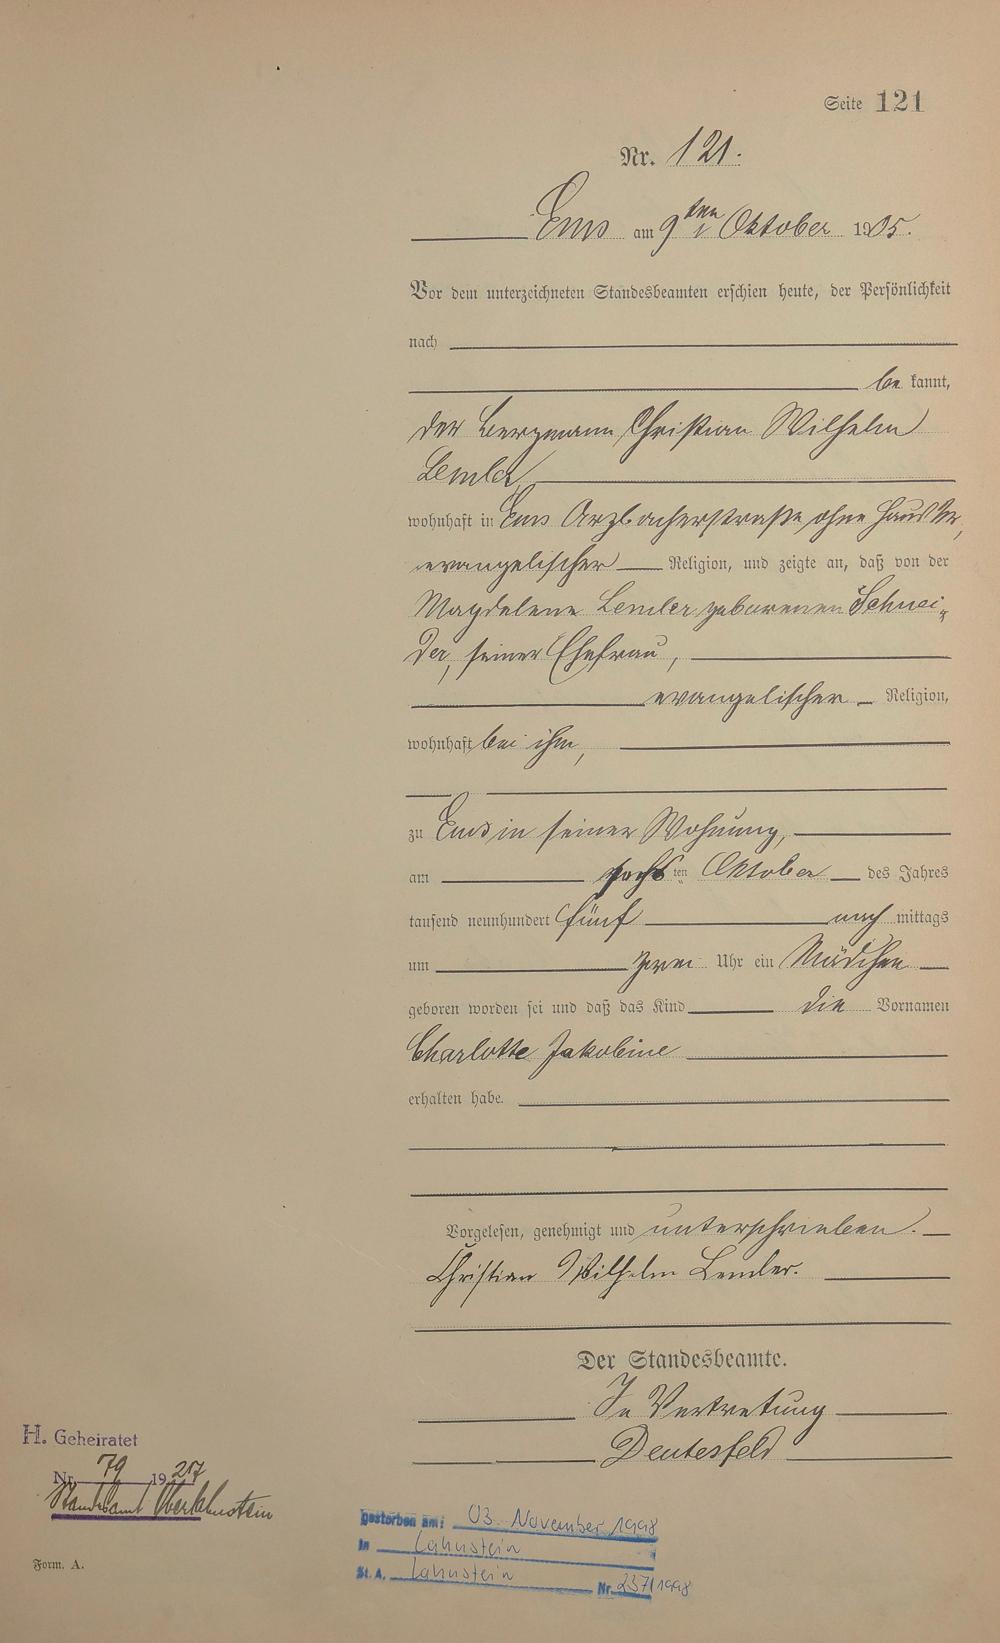 Seite 121
Nr. 121.
Ems am 9ten Oktober 1905.
Vor dem unterzeichneten Standesbeamten erschien heute, der Persönlichkeit
nach
be kannt,
der Bergmann Christian Wilhelm
Lemler,
wohnhaft in Ems Arzbacherstraße ohne Haus Nr,
evangelischer Religion, und zeigte an, daß von der
Magdelene Lemler geborenen Schnei-
der, seiner Ehefrau,
evangelischer Religion,
wohnhaft bei ihm,
zu Ems in seiner Wohnung,
am sechsten Oktober des Jahres
tausend neunhundert fünf nach mittags
um zwei Uhr ein Mädchen
geboren worden sei und daß das Kind die Vornamen
Charlotte Jakobine
erhalten habe.
Vorgelesen, genehmigt und unterschrieben.
Christian Wilhelm Lemler.
Der Standesbeamte.
In Vertretung
Deutesfeld
H. Geheiratet
Nr. 79 1927
Standesamt Oberlahnstein
gestorben am: 03. November 1998
in Lahnstein
St. A. Lahnstein Nr. 237/1998
Form. A.